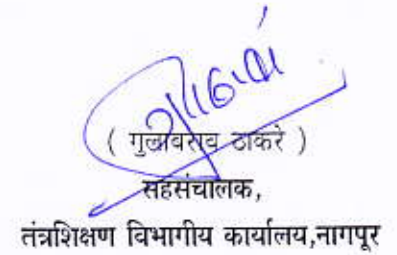 ( गुलाबराव ठाकरे )
सहसंचालक,
तंत्रशिक्षण विभागीय कार्यालय,नागपूर